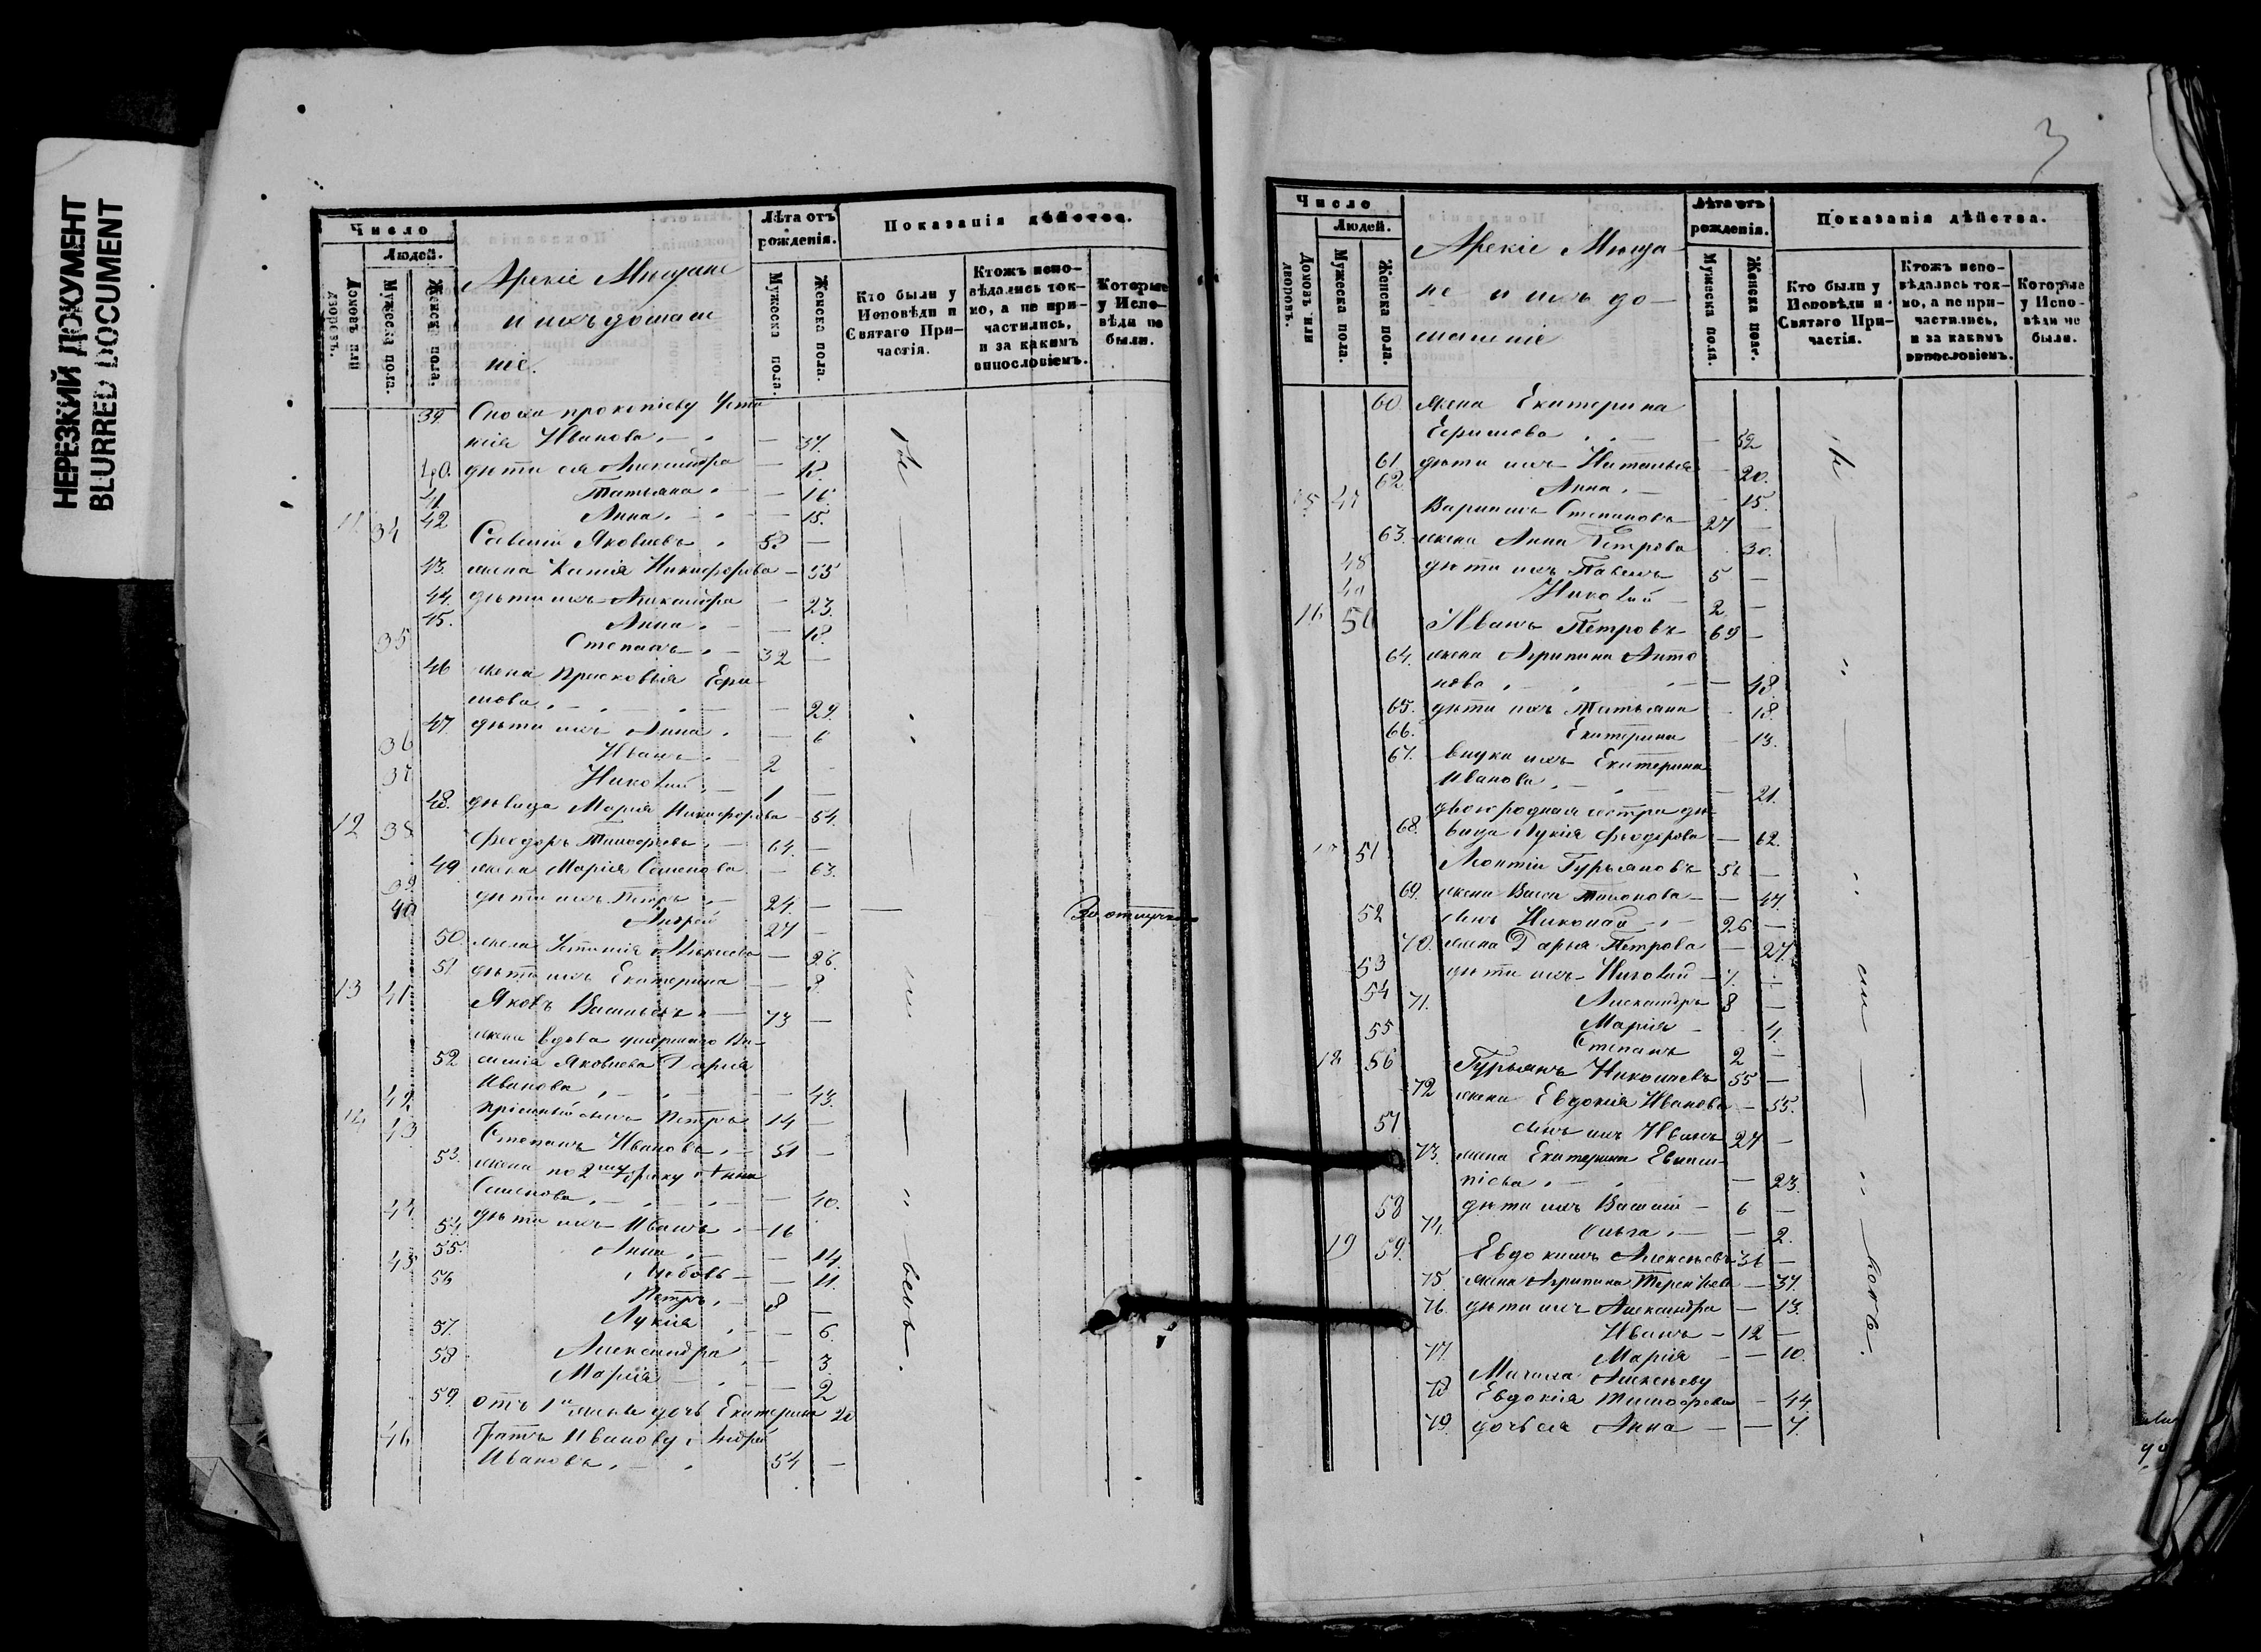 НЕРЕЗКИЙ ДОКУМЕНТ
BLURRED DOCUMENT
Число
Людей.
Домовъ или дворовъ.
Мужеска пола.
Женск. пола.
Арскіе Мещане
и ихъ домаш
ніе.
Лѣта отъ рожденія.
Мужеска пола.
Женска пола.
Показанія дѣйства.
Кто были у Исповѣди и Святаго Причастія.
Ктожъ исповѣдались токмо, а не причастились, и за какимъ винословіемъ.
Которые у Исповѣди не были.
39. Сноха Прокопіеву Усти
нія Иванова - 37.
40. дѣти ея Александра - 18.
41 Татьяна - 16
42 Анна - 15.
11. 34 Савелій Яковлевъ 58 -
43. жена Ксенія Никифорова - 55
44. дѣти ихъ Александра - 23.
45. Анна - 18.
35 Степанъ 32 -
46 жена Прасковья Ефи-
мова - 29.
47. дѣти ихъ Анна - 6
36 Иванъ 2 -
37. Николай 1 -
48. дѣвица Марія Никифорова - 54.
12 38 Феодоръ Тимофѣевъ 64. -
49 жена Марія Семенова - 63.
39. дѣти ихъ Петръ 24. -
40 Андрей 27 - Въ отлучкѣ
50. жена Устинія Алексѣева - 26.
51 дѣти ихъ Екатерина - 8.
13 41 Яковъ Васильевъ 73 -
жена вдова умершаго Ва-
52 силія Яковлева Дарія
Иванова - 43.
42. пріемный сынъ Петръ 14 -
14 43 Степанъ Ивановъ 51 -
53. жена по 2му браку Анна
Семенова - 40.
44. дѣти ихъ Иванъ 16
54. Анна - 14.
55. Любовь - 11.
45 Петръ 8 -
56 Лукія - 6.
57. Александра - 3.
58 Марія - 2
59 отъ 1й жены дочь Екатерина 20
46 Братъ Иванову Андрей
Ивановъ 54 -
3
Число
Людей.
Домовъ или дворовъ.
Мужеска пола.
Женска пола.
Арскіе Меща-
не и ихъ до-
машніе
Лѣта отъ рожденія.
Мужеска пола.
Женска пол.
Показанія дѣйства.
Кто были у Исповѣди и Святаго Причастія.
Ктожъ исповѣдались токмо, а не причастились, и за какимъ винословіемъ.
Которые у Исповѣди не были.
60. жена Екатерина
Ефимова - 52
61 дѣти ихъ Наталья - 20.
62. Анна - 15.
15 47 Степановъ 27 -
63. жена Анна Петрова 30.
48 дѣти ихъ Павелъ 5 -
49 Николай 2 -
16 50 Иванъ Петровъ 69 -
64. жена Агрипина Анто
нова - 48.
65. дѣти ихъ Татьяна - 18.
66. Екатерина - 13.
67. внука ихъ Екатерина
Иванова - 21.
двоюродная сестра дѣ-
68. вица Лукія Феодорова - 62.
17 51 Гурьяновъ 51 -
69. жена Васса - 47.
52 сынъ Николай 26 -
70. жена Дарья Петрова - 27.
53 дѣти ихъ Николай 7. -
54 Александръ 8 -
71. Марія - 4.
55 Степанъ 2 -
18 56 Гурьянъ Николаевъ 55 -
72 жена Евдокія Иванова - 55.
57 сынъ ихъ Иванъ 27 -
73. жена Екатерина
- 23.
58 дѣти ихъ Василій 6 -
74. Ольга - 2.
19 59. Евдокимъ Алексѣевъ 36 -
75. жена Агрипина Терентьева - 37.
76. дѣти ихъ Александра - 13.
Иванъ - 12 -
77. Марія - 10.
Мачиха Алексѣеву
78 Евдокія Тимофеева - 44.
79 дочь ея Анна - 7.